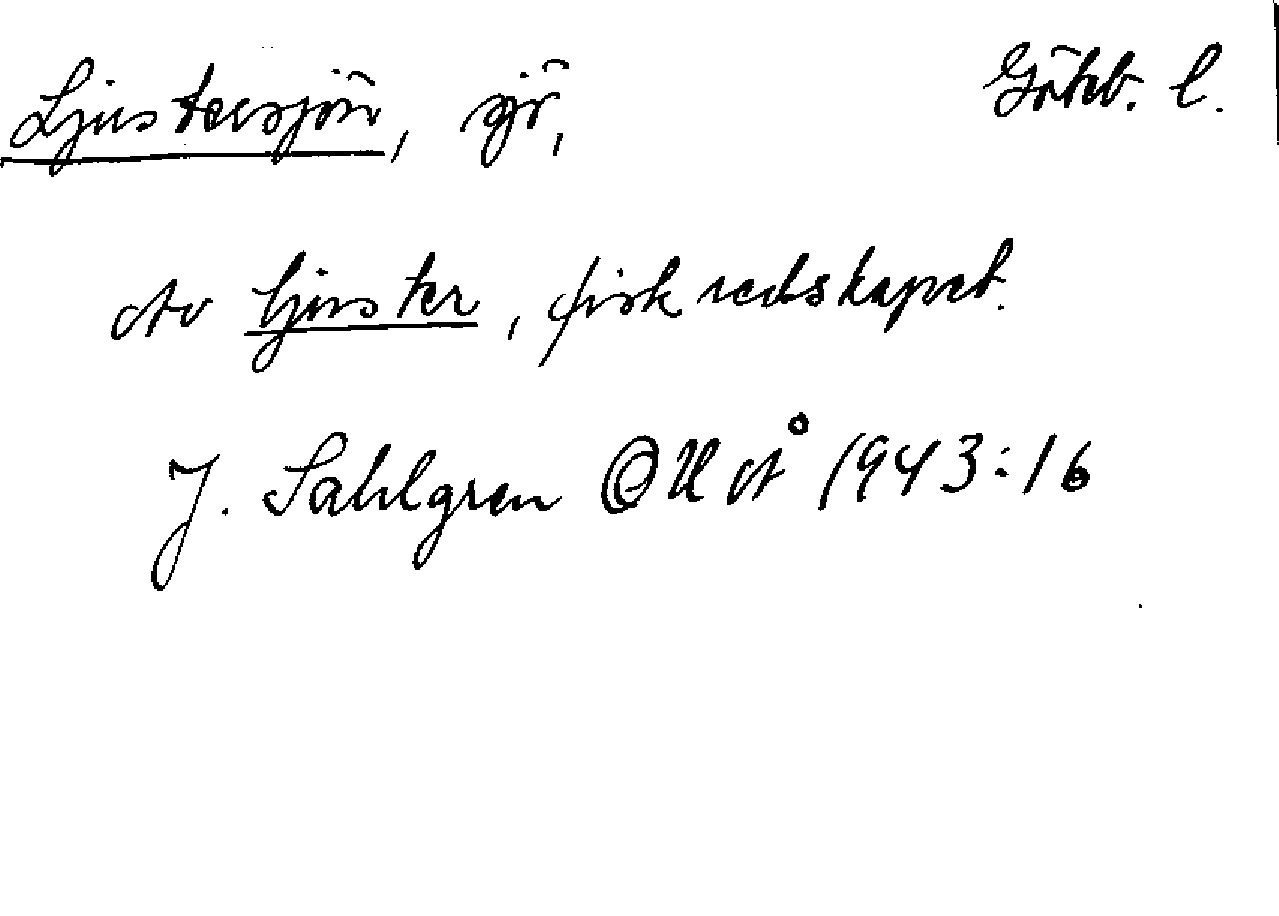 Ljustersjön, sjö, Götcb. l.
Av ljuster, fiskredskapet.
J. Sahlgren OUÅ 1943:16